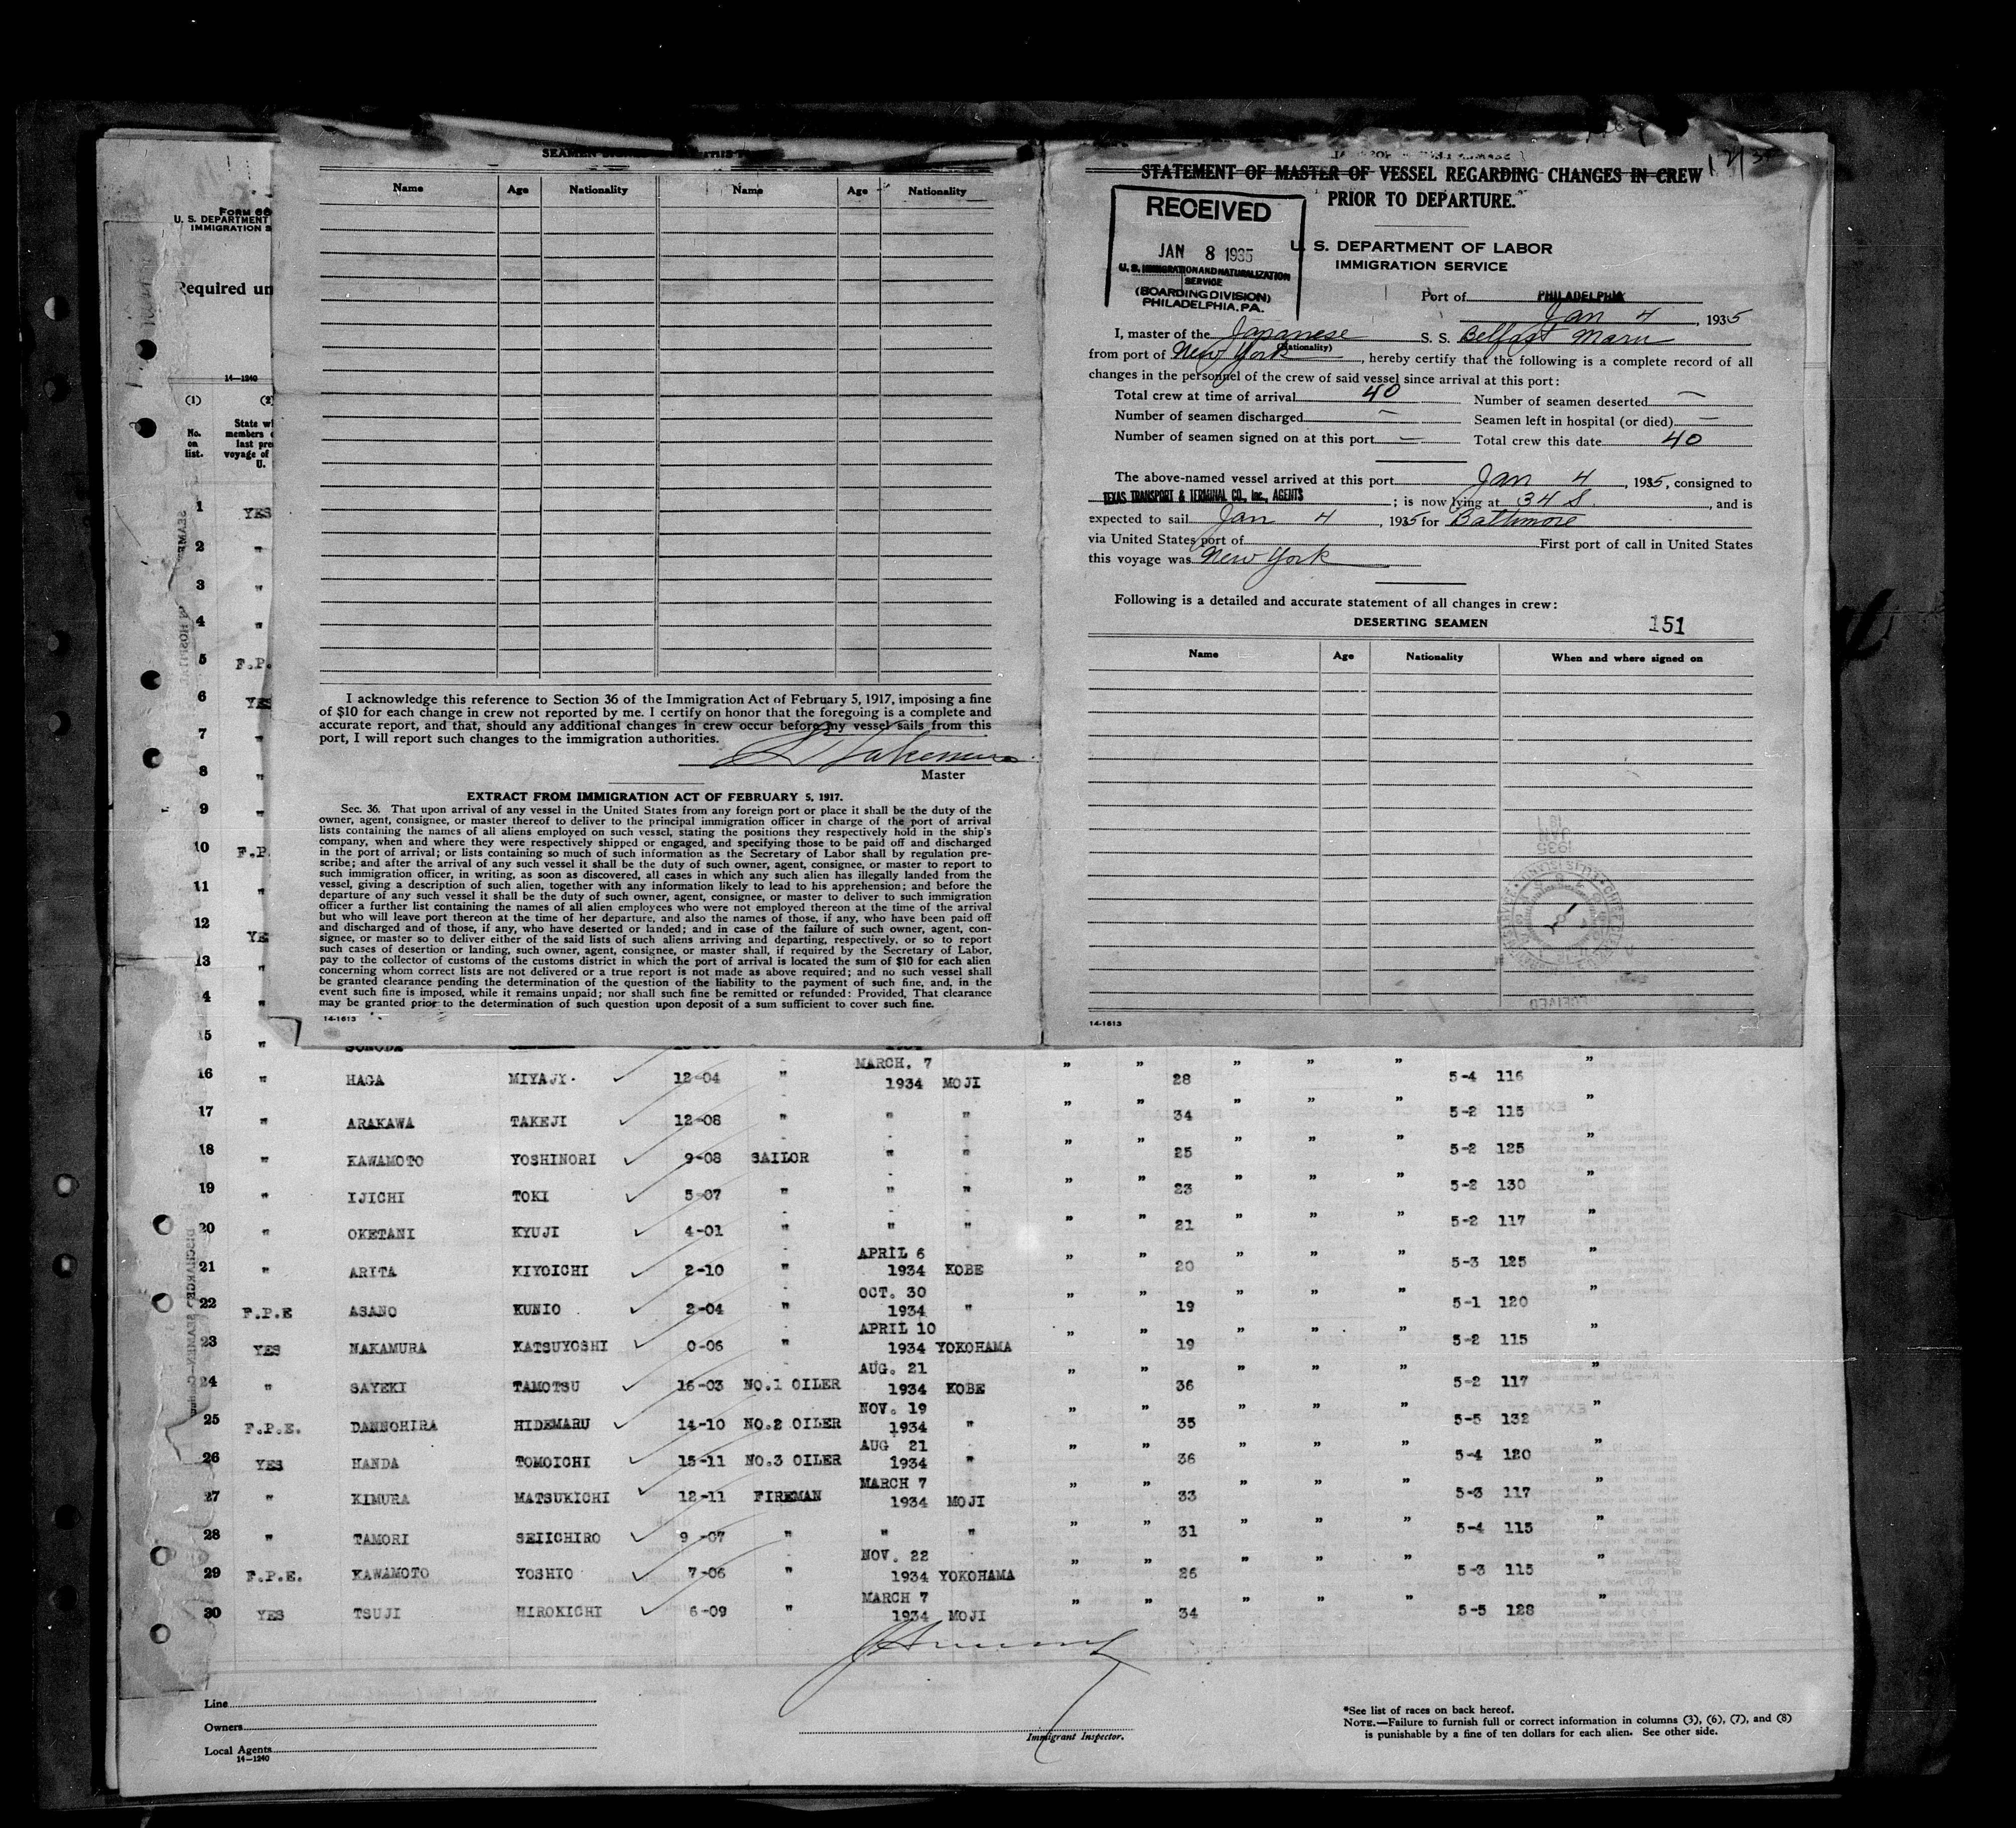 Name Age Nationality Name Age Nationality
I acknowledge this reference to Section 36 of the Immigration Act of February 5, 1917, imposing a fine
of $10 for each change in crew not reported by me. I certify on honor that the foregoing is a complete and
accurate report, and that, should any additional changes in crew occur before my vessel sails from this
port, I will report such changes to the immigration authorities.
Master
EXTRACT FROM IMMIGRATION ACT OF FEBRUARY 5, 1917.
Sec. 36. That upon arrival of any vessel in the United States from any foreign port or place it shall be the duty of the
owner, agent, consignee, or master thereof to deliver to the principal immigration officer in charge of the port of arrival
lists containing the names of all aliens employed on such vessel, stating the positions they respectively hold in the ship's
company, when and where they were respectively shipped or engaged, and specifying those to be paid off and discharged
in the port of arrival; or lists containing so much of such information as the Secretary of Labor shall by regulation pre-
scribe; and after the arrival of any such vessel it shall be the duty of such owner, agent, consignee, or master to report to
such immigration officer, in writing, as soon as discovered, all cases in which any such alien has illegally landed from the
vessel, giving a description of such alien, together with any information likely to lead to his apprehension; and before the
departure of any such vessel it shall be the duty of such owner, agent, consignee, or master to deliver to such immigration
officer a further list containing the names of all alien employees who were not employed thereon at the time of the arrival
but who will leave port thereon at the time of her departure, and also the names of those, if any, who have been paid off
and discharged and of those, if any, who have deserted or landed; and in case of the failure of such owner, agent, con-
signee, or master so to deliver either of the said lists of such aliens arriving and departing, respectively, or so to report
such cases of desertion or landing, such owner, agent, consignee, or master shall, if required by the Secretary of Labor,
pay to the collector of customs of the customs district in which the port of arrival is located the sum of $10 for each alien
concerning whom correct lists are not delivered or a true report is not made as above required; and no such vessel shall
be granted clearance pending the determination of the question of the liability to the payment of such fine, and, in the
event such fine is imposed, while it remains unpaid; nor shall such fine be remitted or refunded: Provided, That clearance
may be granted prior to the determination of such question upon deposit of a sum sufficient to cover such fine.
14-1613
STATEMENT OF MASTER OF VESSEL REGARDING CHANGES IN CREW
PRIOR TO DEPARTURE.
RECEIVED
JAN 8 1935
U. S. IMMIGRATION AND NATURALIZATION
SERVICE
(BOARDING DIVISION)
PHILADELPHIA, PA.
U. S. DEPARTMENT OF LABOR
IMMIGRATION SERVICE
Port of PHILADELPHIA
Jan 4, 1935
I, master of the Japanese S. S. Belfast Maru
(Nationality)
from port of New York, hereby certify that the following is a complete record of all
changes in the personnel of the crew of said vessel since arrival at this port:
Total crew at time of arrival 40 Number of seamen deserted —
Number of seamen discharged — Seamen left in hospital (or died) —
Number of seamen signed on at this port — Total crew this date 40
The above-named vessel arrived at this port Jan 4, 1935, consigned to
TEXAS TRANSPORT & TERMINAL CO., Inc., AGENTS; is now lying at 34 S., and is
expected to sail Jan 4, 1935 for Baltimore
via United States port of First port of call in United States
this voyage was New York
Following is a detailed and accurate statement of all changes in crew:
DESERTING SEAMEN 151
Name Age Nationality When and where signed on
14-1613
FORM 
U. S. DEPARTMENT
IMMIGRATION S
Required un
14—1240
(1) (2)
No. on list.
State wh
members
last pre
voyage of
U.
1 YES
2 "
3 "
4 "
5 F.P.
6 YES
7 "
8 "
9 "
10 F.P.
11 "
12 YE
13 "
14 "
15 "
16 " HAGA MIYAJY. 12-04 " MARCH. 7 1934 MOJI " " 28 " " " 5-4 116 "
17 " ARAKAWA TAKEJI 12-08 " " " " " 34 " " " 5-2 115 "
18 " KAWAMOTO YOSHINORI 9-08 SAILOR " " " " 25 " " " 5-2 125 "
19 " IJICHI TOKI 5-07 " " " " " 23 " " " 5-2 130 "
20 " OKETANI KYUJI 4-01 " " " " " 21 " " " 5-2 117 "
21 " ARITA KIYOICHI 2-10 " APRIL 6 1934 KOBE " " 20 " " " 5-3 125 "
22 F.P.E ASANO KUNIO 2-04 " OCT. 30 1934 " " " 19 " " " 5-1 120 "
23 YES NAKAMURA KATSUYOSHI 0-06 " APRIL 10 1934 YOKOHAMA " " 19 " " " 5-2 115 "
24 " SAYEKI TAMOTSU 16-03 NO.1 OILER AUG. 21 1934 KOBE " " 36 " " " 5-2 117 "
25 F.P.E. DANNOHIRA HIDEMARU 14-10 NO.2 OILER NOV. 19 1934 " " " 35 " " " 5-5 132 "
26 YES HANDA TOMOICHI 15-11 NO.3 OILER AUG 21 1934 " " " 36 " " " 5-4 120 "
27 " KIMURA MATSUKICHI 12-11 FIREMAN MARCH 7 1934 MOJI " " 33 " " " 5-3 117 "
28 " TAMORI SEIICHIRO 9-07 " " " " " 31 " " " 5-4 115 "
29 F.P.E. KAWAMOTO YOSHIO 7-06 " NOV. 22 1934 YOKOHAMA " " 26 " " " 5-3 115 "
30 YES TSUJI HIROKICHI 6-09 " MARCH 7 1934 MOJI " " 34 " " " 5-5 128 "
Line
Owners
Local Agents
14—1240
Immigrant Inspector.
*See list of races on back hereof.
NOTE.—Failure to furnish full or correct information in columns (3), (6), (7), and (8)
is punishable by a fine of ten dollars for each alien. See other side.